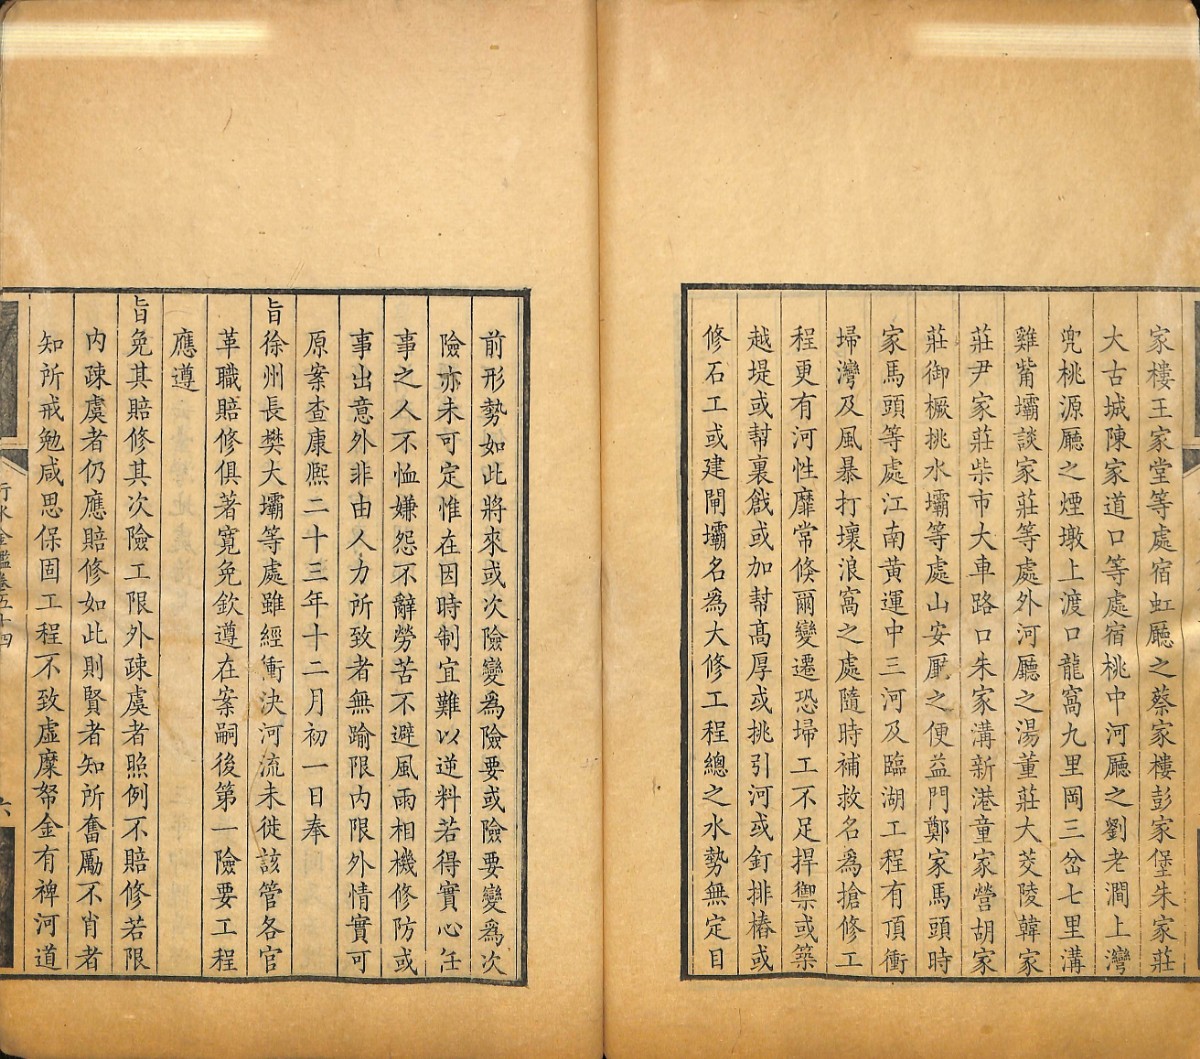 家樓王家堂等處宿虹廳之蔡家樓彭家堡朱家莊
大古城陳家道口等處宿桃中河廳之劉老澗上灣
兜桃源廳之煙墩上渡口龍窩九里岡三岔七里溝
雞嘴壩談家莊等處外河廳之湯董莊大茭陵韓家
莊尹家莊柴市大車路口朱家溝新港童家營胡家
莊御橛挑水壩等處山安廳之便益門鄭家馬頭時
家馬頭等處江南黃運中三河及臨湖工程有頂衝
埽灣及風暴打壞浪窩之處隨時補救名爲搶修工
程更有河性靡常倏爾變遷恐埽工不足捍禦或築
越堤或幫裏戧或加幫髙厚或挑引河或釘排樁或
修石工或建閘壩名爲大修工程總之水勢無定目
前形勢如此將來或次險變爲險要或險要變爲次
險亦未可定惟在因時制宜難以逆料若得實心任
事之人不恤嫌怨不辭勞苦不避風雨相機修防或
事出意外非由人力所致者無踰限内限外情實可
原案查康熙二十三年十二月初一日奉
旨徐州長樊大壩等處雖經衝決河流未徙該管各官
革職賠修俱著寛免欽遵在案嗣後第一險要工程
應遵
旨免其賠修其次險工限外疎虞者照例不賠修若限
内疎虞者仍應賠修如此則賢者知所奮勵不肖者
知所戒勉咸思保固工程不致虛糜帑金有裨河道
行水金鑑卷五十四
六